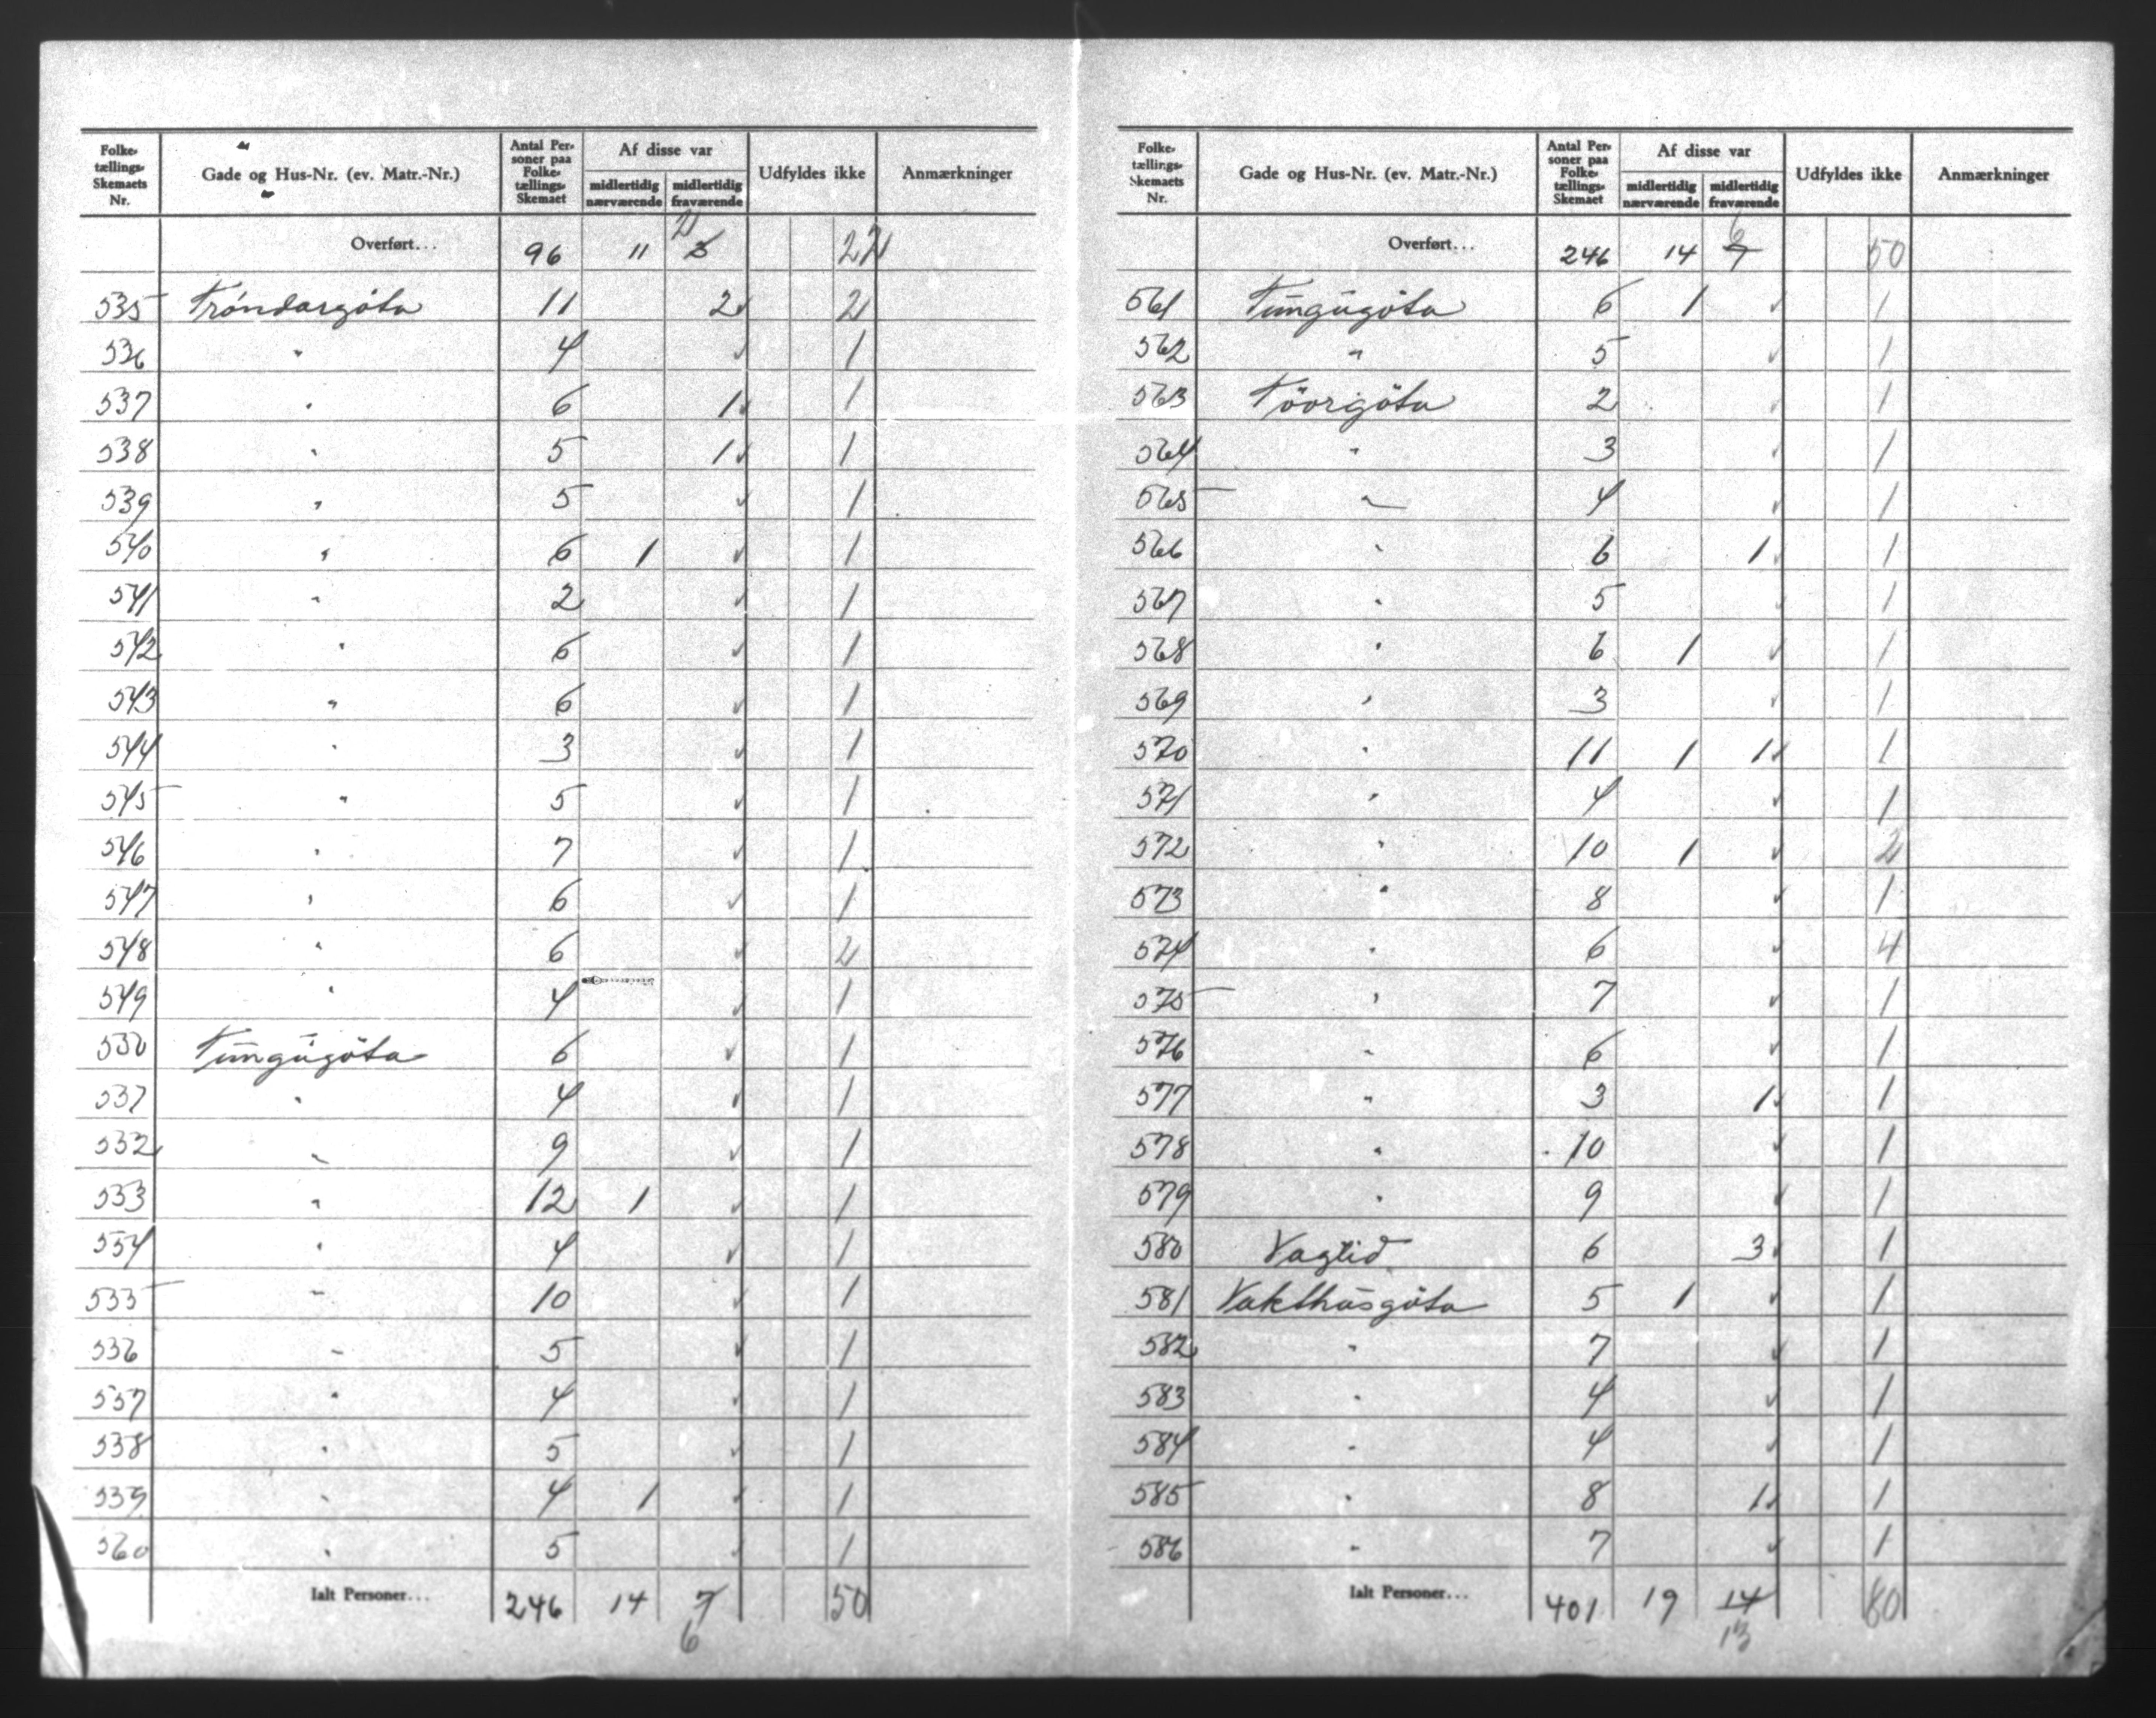 Folke-
tællings-
Skemaets
Nr.
Gade og Hus-Nr. (ev. Matr.-Nr.)
Antal Per-
soner paa
Folke-
tællings-
Skemaet
Af disse var
midlertidig
nærværende
midlertidig
fraværende
Udfyldes ikke
Anmærkninger
Overført... 96 11 3 2 22
535 Tróndargöta 11 2 2
536 " 4 1
537 " 6 1 1
538 " 5 1 1
539 " 5 1
540 " 6 1 1
541 " 2 1
542 " 6 1
543 " 6 1
544 " 3 1
545 " 5 1
546 " 7 1
547 " 6 1
548 " 6 2
549 " 4 1
550 Tungugöta 6 1
551 " 4 1
552 " 9 1
553 " 12 1 1
554 " 4 1
555 " 10 1
556 " 5 1
557 " 4 1
558 " 5 1
559 " 4 1 1
560 " 5 1
Ialt Personer... 246 14 7 50
6
Folke-
tællings-
Skemaets
Nr.
Gade og Hus-Nr. (ev. Matr.-Nr.)
Antal Per-
soner paa
Folke-
tællings-
Skemaet
Af disse var
midlertidig
nærværende
midlertidig
fraværende
Udfyldes ikke
Anmærkninger
Overført... 246 14 7 6 50
561 Tungugöta 6 1 1
562 " 5 1
563 Töorgöta 2 1
564 " 3 1
565 " 4 1
566 " 6 1 1
567 " 5 1
568 " 6 1 1
569 " 3 1
570 " 11 1 1 1
571 " 4 1
572 " 10 1 2
573 " 8 1
574 " 6 4
575 " 7 1
576 " 6 1
577 " 3 1 1
578 " 10 1
579 " 9 1
580 Vaglið 6 3 1
581 Vakthúsgöta 5 1 1
582 " 7 1
583 " 4 1
584 " 4 1
585 " 8 1 1
586 " 7 1
Ialt Personer... 401 19 14 80
13